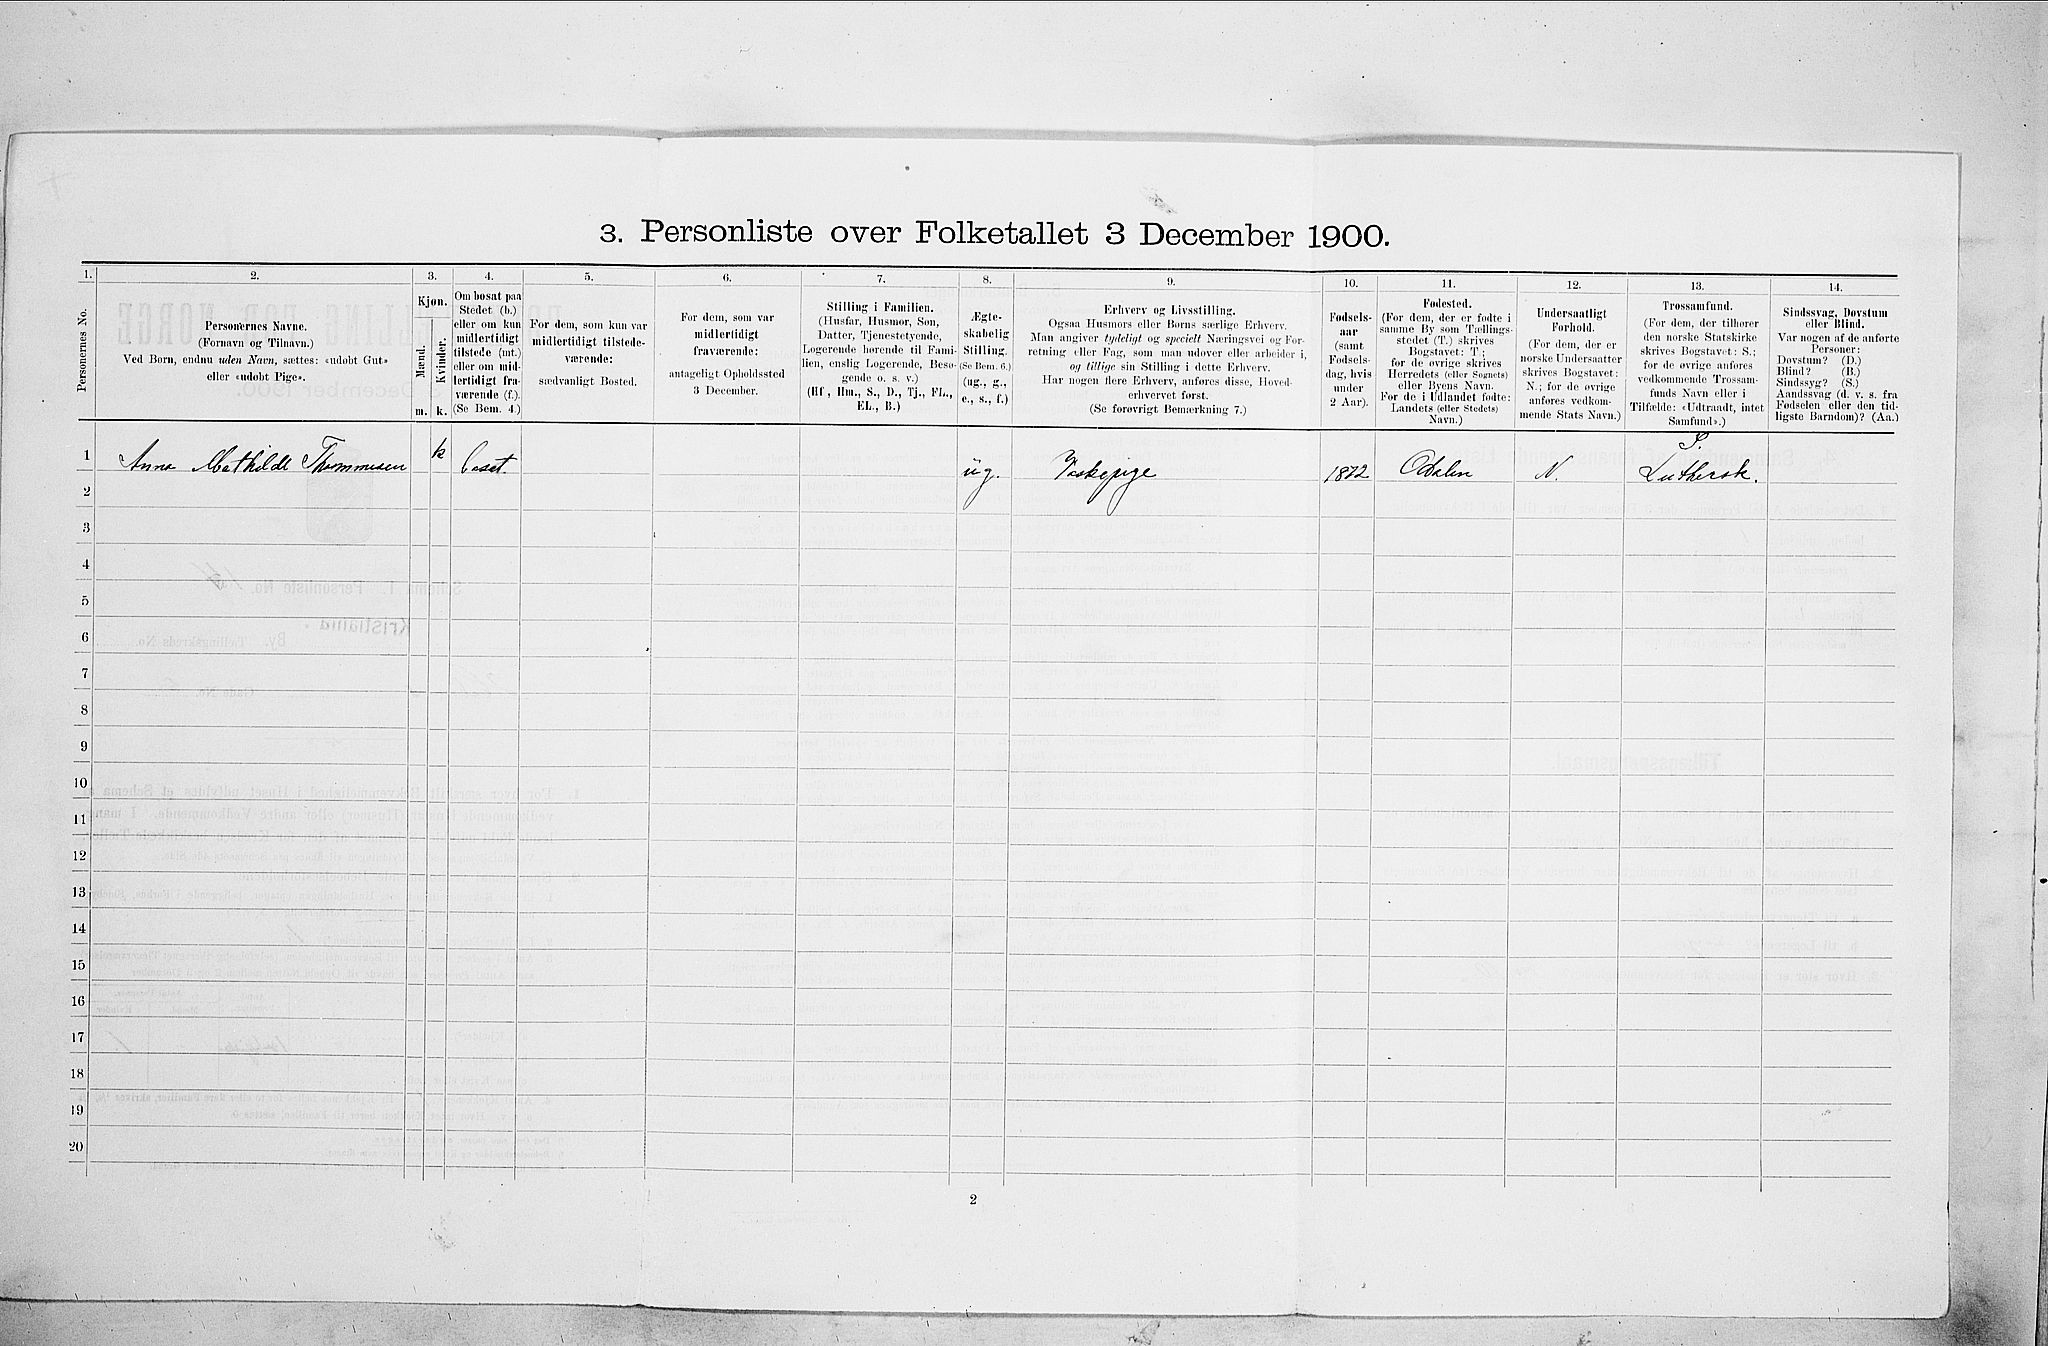 3. Personliste over Folketallet 3 December 1900.
1. 2. 3. 4. 5. 6. 7. 8. 9. 10. 11. 12. 13. 14.
Personernes No.
Personernes Navne.
(Fornavn og Tilnavn.)
Ved Børn, endnu uden Navn, sættes: «udøbt Gut»
eller «udøbt Pige».
Kjøn.
Mænd.
Kvinder.
m. k.
Om bosat paa
Stedet (b.)
eller om kun
midlertidigt
tilstede (mt.)
eller om mid-
lertidigt fra-
værende (f.).
(Se Bem. 4.)
For dem, som kun var
midlertidigt tilstede-
værende:
sædvanligt Bosted.
For dem, som var
midlertidigt
fraværende:
antageligt Opholdssted
3 December.
Stilling i Familien.
(Husfar, Husmor, Søn,
Datter, Tjenestetyende,
Logerende hørende til Fami-
lien, enslig Logerende, Besø-
gende o. s. v.)
(Hf., Hm., S., D., Tj., FL.,
EL., B.)
Ægte-
skabelig
Stilling.
(Se Bem. 6.)
(ug., g.,
e., s., f.)
Erhverv og Livsstilling.
Ogsaa Husmors eller Børns særlige Erhverv.
Man angiver tydeligt og specielt Næringsvei og For-
retning eller Fag, som man udøver eller arbeider i,
og tillige sin Stilling i dette Erhverv.
Har nogen flere Erhverv, anføres disse, Hoved-
erhvervet først.
(Se forøvrigt Bemærkning 7.)
Fødsels-
aar
(samt
Fødsels-
dag, hvis
under
2 Aar).
Fødested.
(For dem, der er fødte i
samme By som Tællings-
stedet (T.) skrives
Bogstavet: T.;
for de øvrige skrives
Herredets (eller Sognets)
eller Byens Navn.
For de i Udlandet fødte:
Landets (eller Stedets)
Navn.)
Undersaatligt
Forhold.
(For dem, der er
norske Undersaatter
skrives Bogstavet:
N.; for de øvrige
anføres vedkom-
mende Stats Navn.)
Trossamfund.
(For dem, der tilhører
den norske Statskirke
skrives Bogstavet: S.;
for de øvrige anføres
vedkommende Trossam-
funds Navn eller i
Tilfælde: «Udtraadt, intet
Samfund».)
Sindssvag, Døvstum
eller Blind.
Var nogen af de anførte
Personer:
Døvstum? (D.)
Blind? (B.)
Sindssyg? (S.)
Aandssvag (d. v. s. fra
Fødselen eller den tid-
ligste Barndom)? (Aa.)
S.
1 Anna Mathilde Thommesen k bosat. ug. Vaskepige 1872 Odalen N. Luthersk.
2
3
4
5
6
7
8
9
10
11
12
13
14
15
16
17
18
19
20
2